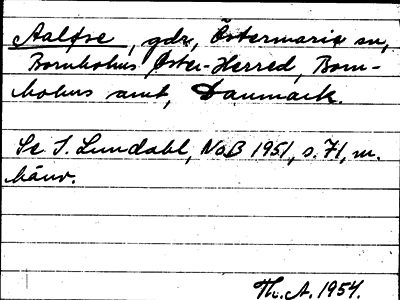 Aaløse, gdr, Östermaria sn,
Bornholms Öster-Herred, Born-
holms amt, Danmark.
Se I. Lundahl, NoB 1951, s. 71, m.
hänv.
Th. A. 1954.